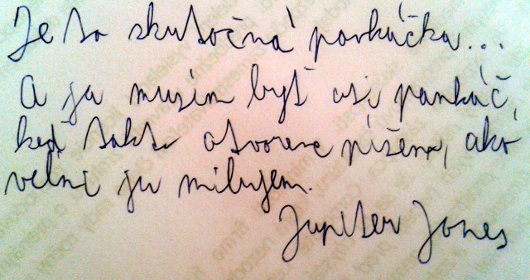 Je to skutočná pankáčka...
A ja musím byť asi pankáč,
keď takto otvorene píšem, ako
veľmi ju milujem.
Jupiter Jones